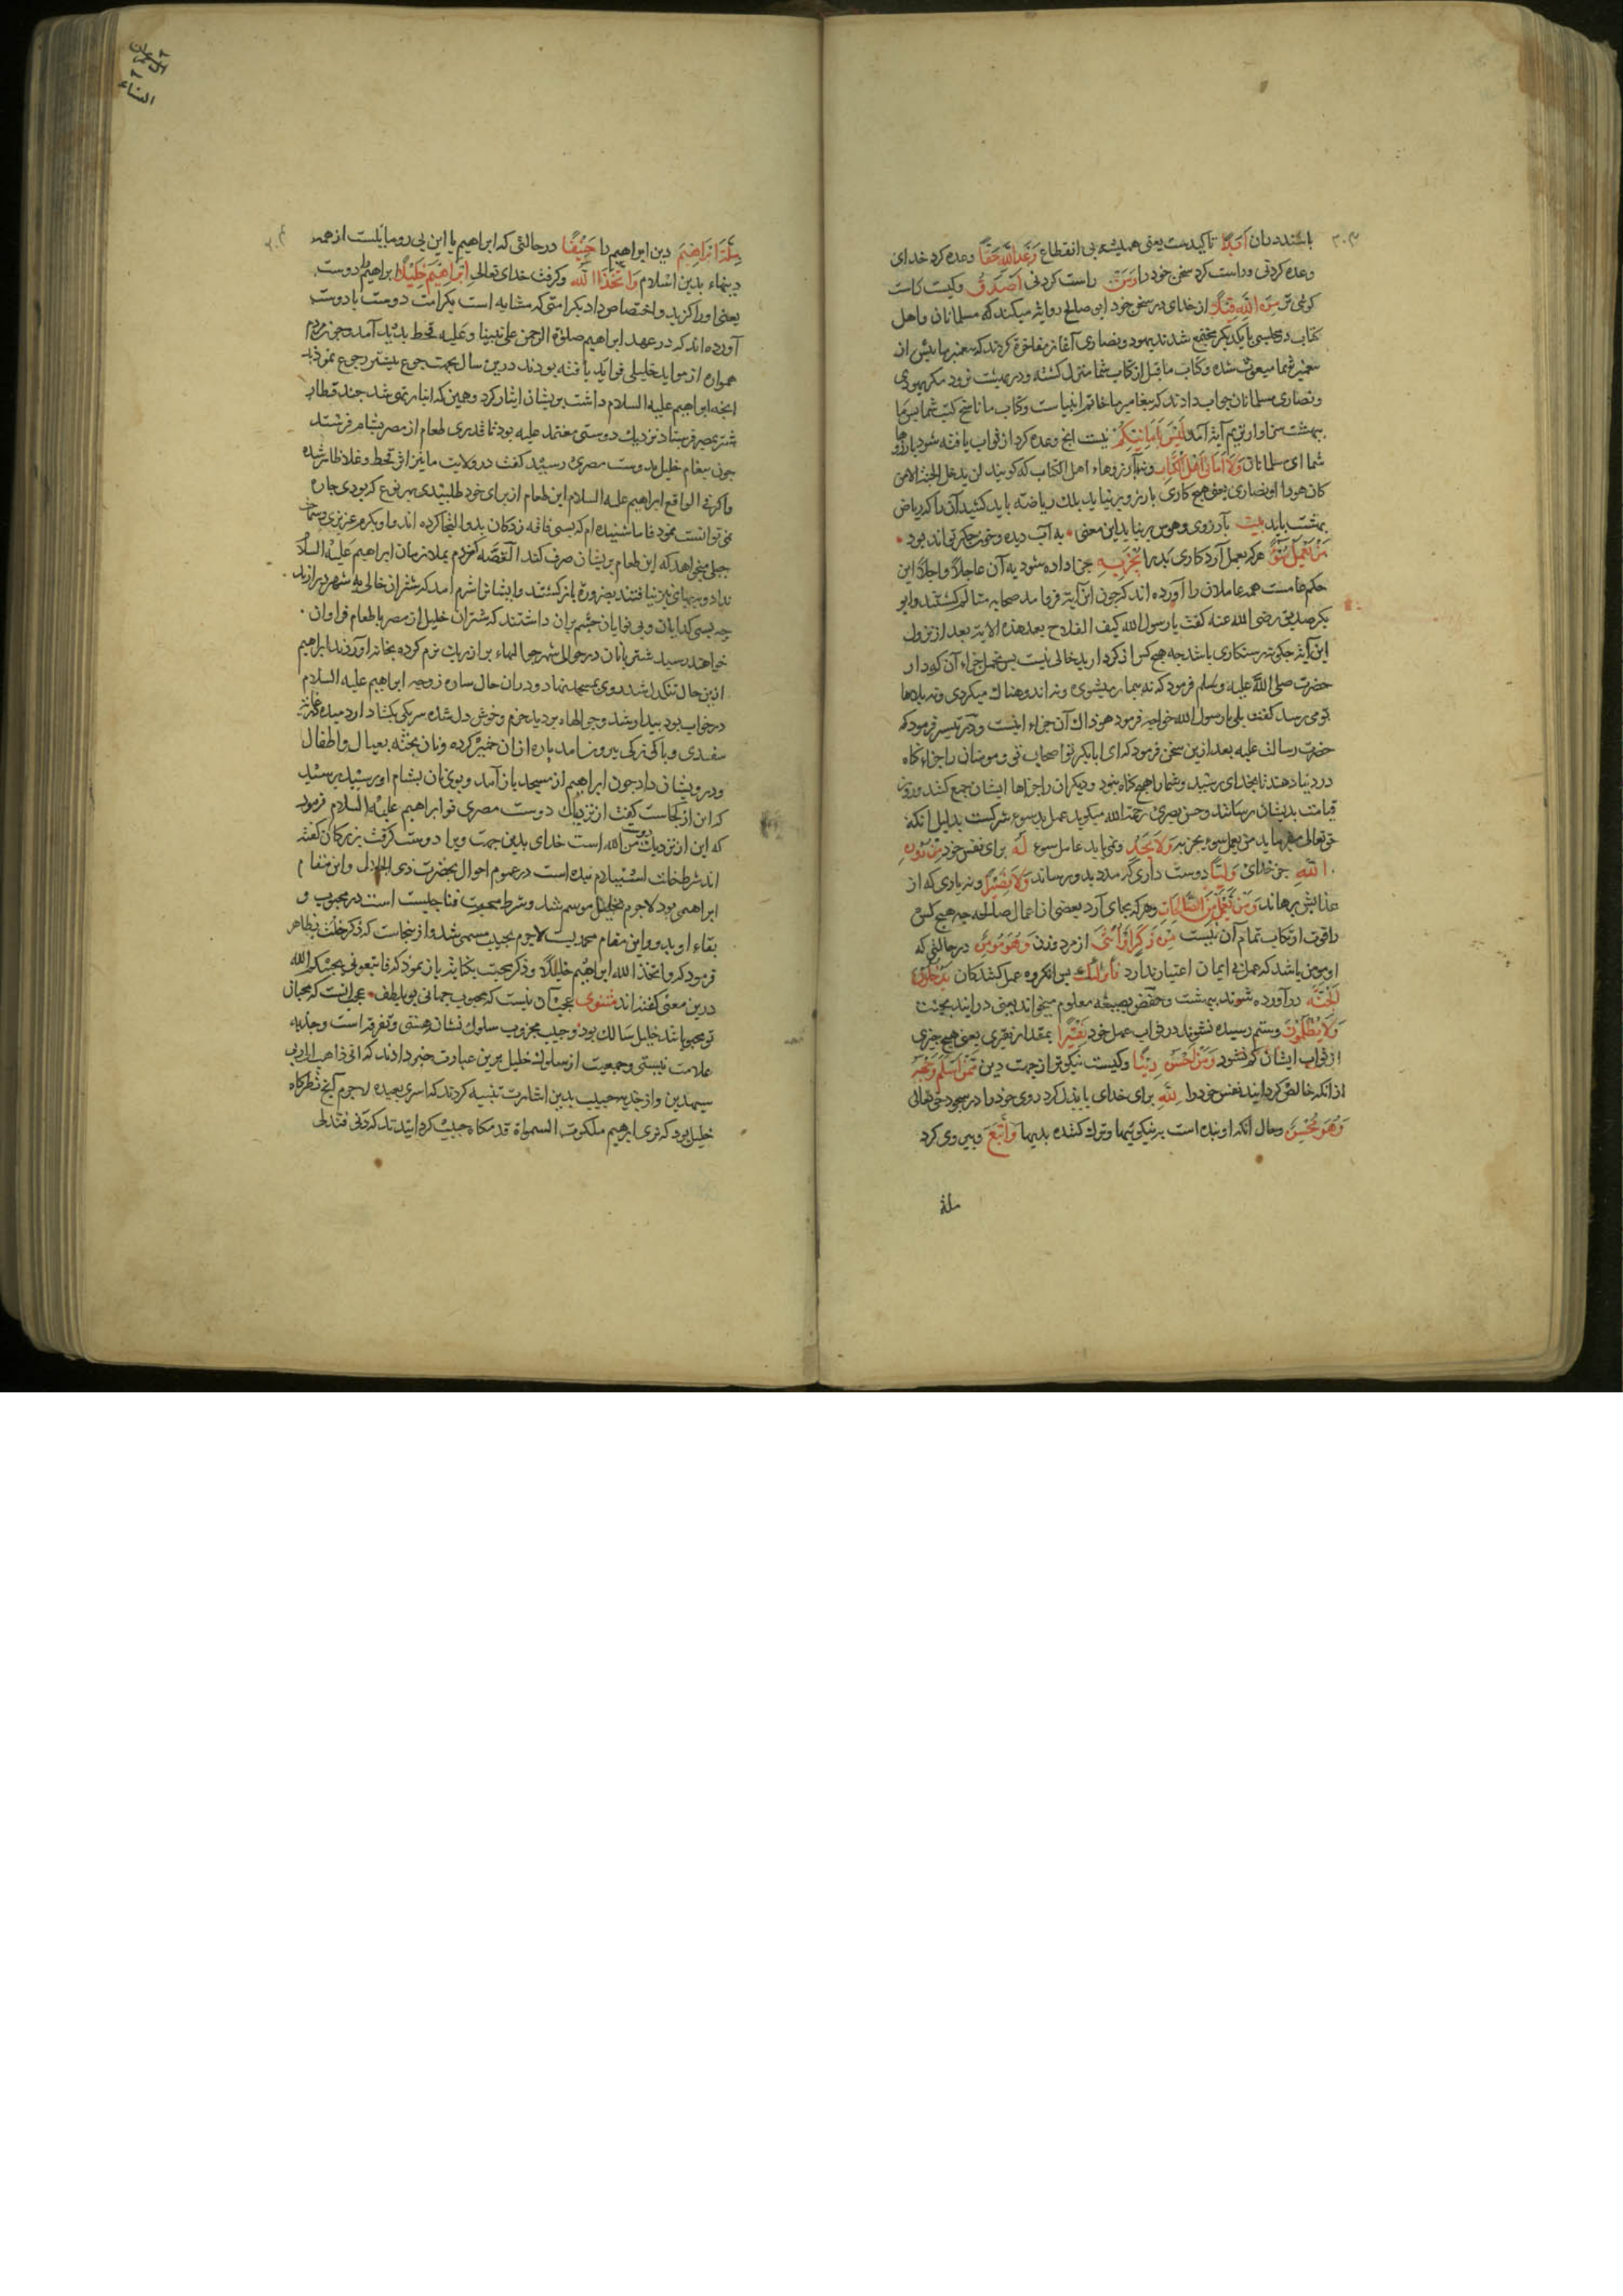 باشند دران اَبَدًا تاکیدست یعنی همیشه بی انقطاع وَعْدَ اللَّهِ حَقًّا وعده کرد خدای
وعده کردنی وراست کرد سخن خود را وَمَنْ راست کردنی اَصْدَقُ وکیست کاست
کوئی تر مِنَ اللَّهِ قِیلًا از خدای در سخن خود ابی صالح روایت میکند که مسلمانان واهل
کتاب در مجلسی با یکدیکر مجتمع شدند یهود ونصاری آغاز مفاخرة کردند که پیغمبر ما پیش از
پیغمبر شما مبعوث شده وکتاب ما قبل از کتاب شما منزل کشته ودر بهشت نرود مکر یهودی
ونصاری مسلمانان جواب دادند که پیغامبر ما خاتم انبیاست وکتاب ما ناسخ کتب شما پس ما
ببهشت سزاوارتریم آیة آمد لَیْسَ بِاَمَانِیِّکُمْ نیست انچ وعده کرد از ثواب یافته شود بارزوها
شما ای مسلمانان وَلَا اَمَانِیِّ اَهْلِ الْکِتَابِ ونه آرزوهاء اهل الکتاب که کویند لن یدخل الجنة الا من
کان هودا او نصاری یعنی هیچ کاری بارزو بر نیاید بلک ریاضه باید کشید آن را که ریاض
بهشت باید بیت بآرزوی وهوس بر نیاید این معنی بآب دیده وخون جکر تواند بود
مَنْ یَعْمَلْ سُوءًا هر که بعمل آرد کاری بد را یُجْزَ بِهِ جزا داده شود به آن عاجلًا واجلًا این
حکم عامست همه عاملان را آورده اند که چون این آیة فروآمد صحابه متالم کشتند وابو
بکر صدیق رضی الله عنه کفت یا رسول الله کیف الفلاح بعد هذه الایة بعد از نزول
این آیة چکونه رستکاری باشد چه هیچ کس از کردار بد خالی نیست پس تحمل جزاء آن کردار
حضرت صلی الله علیه وسلم فرمود که نه بیمار میشوی ونه اندوهناک میکردی ونه بلاها
بتو می رسد کفت بلی یا رسول الله خواجه فرمود هو ذاک آن جزاء اینست ودر تیسیر فرمود که
حضرت رسالت علیه بعد ازین سخن فرمود که ای ابابکر تو واصحاب تو ومومنان را جزاء کناه
در دنیا دهند تا بخدای رسید وشما را هیچ کناه نبود ودیکران را جزاها ایشان جمع کنند وروز
قیامت بدیشان رسانند وحسن بصری رحمة الله میکوید عمل بد سوء شرکست بدلیل انکه
حق تعالی میفرماید من یعمل سوء یجز به وَلَا یَجِدْ ونمی یابد عامل سوء لَهُ برای نفس خود مِنْ دُونِ
اللَّهِ جز خدای وَلِیًّا دوست داری که مدد بدو رساند وَلَا نَصِیرًا ونه یاری که از
عذابش برهاند وَمَنْ یَعْمَلْ مِنَ الصَّالِحَاتِ وهر که بجای آرد بعضی از اعمال صالحه چه هیچ کس
را قوت ارتکاب تمام آن نیست مِنْ ذَکَرٍ اَوْ اُنْثَی از مرد وزن وَهُوَ مُؤْمِنٌ در حالتی که
او مومن باشد که عمل بی ایمان اعتبار ندارد فَاُولَئِکَ پس انکروه عمل کنندکان یَدْخُلُونَ
الْجَنَّةَ در آورده شوند ببهشت وحفص بصیغه معلوم میخواند یعنی درآیند بجنت
وَلَا یُظْلَمُونَ وستم رسیده نشوند در ثواب عمل خود نَقِیرًا بمقدار نقیری یعنی هیچ چیزی
از ثواب ایشان کم نشود وَمَنْ اَحْسَنُ دِینًا وکیست نیکوتر از جهت دین مِمَّنْ اَسْلَمَ وَجْهَهُ
از انکه خالص کردانید نفس خود را لِلَّهِ برای خدای یا بذل کرد روی خود را در سجود حق تعالی
وَهُوَ مُحْسِنٌ وحال انکه او بنده است به نیکوئیها وترک کننده بدیها وَاتَّبَعَ وپیروی کرد
ملة
مِلَّةَ اِبْرَاهِیمَ دین ابراهیم را حَنِیفًا در حالتی که ابراهیم یا این پی رو مایلست از همه
دینهاء بدین اسلام وَاتَّخَذَ اللَّهُ وکرفت خدای تعالی اِبْرَاهِیمَ خَلِیلًا ابراهیم را دوست
یعنی او را کزید واختصاص داد بکرامتی که مشابه است بکرامت دوست با دوست
آورده اند که در عهد ابراهیم صلوة الرحمن علی نبینا وعلیه قحط پدید آمد وچون مردم
همواره از مواید خلیلی فواید یافته بودند درین سال بجهت جوع بیشتر رجوع نمودند
انچه ابراهیم علیه السلام داشت بریشان ایثار کرد وهمین که انبار تهی شد چند قطار
شتر بمصر فرستاد نزدیک دوستی معتمد علیه بود تا قدری طعام از مصر بشام فرستد
چون پیغام خلیل بدوست مصری رسید کفت در ولایت ما نیز اثر قحط وغلا ظاهر شده
واکر فی الواقع ابراهیم علیه السلام این طعام از برای خود طلبیدی بهر نوع که بودی چاره
می توانست نمود فاما شنیده ام که بسی فاقه زدکان بدو التجا کرده اند واو بکرم عزیزی وسخاء
جبلی میخواهد که این طعام بریشان صرف کند القصه کندم بملازمان ابراهیم علیه السلا
نداد وجهای نیز نیافتند بضرورة باز کشتند وایشانرا شرم امد که شتران خالی به شهر در آرند
چه بسی کدایان وبی نوایان چشم بران داشتند که شتران خلیل از مصر با طعام فراوان
خواهند رسید شتربانان در حوالی شهر جوالهاء پر از ریک نرم کرده بخانه آوردند ابراهیم
ازین حال تنکدل شد روی بمسجد نهاد ودران حال ساره زوجه ابراهیم علیه السلام
در خواب بود بیدار شد وجوالهاء پر دید خرم وخوش دل شده سر یکی بکشاد آرد میده بغایة
سفیدی وپاکی نرکی بیرون امد پاره ازان خمیر کرده ونان پخته بعیال واطفال
ودرویشان داد چون ابراهیم از مسجد باز آمد وبوی نان بشام او رسید پرسید
که این از کجاست کفت از نزدیک دوست مصری تو ابراهیم علیه السلام فرمود
که این از نزدیک دوست من الله است خدای بدین جهت ویرا دوست کرفت بزرکان کفته
اند شرط خلت استسلام بنده است در عموم احوال بحضرت ذی الجلال واین مقام
ابراهیمی بود لاجرم بخلیل موسم شد وشرط محبت فنا حبیست است در محبوب و
بقاء او بدو واین مقام محمدیست لاجرم بحبیب مسمی شد وازینجاست که ذکر خلت بظاهر
فرمود که واتخذ الله ابراهیم خلیلًا وذکر محبت بکنایة باز نمود که فاتبعونی یحببکم الله
درین معنی کفته اند مثنوی عجب آن نیست که محبوب جهانی بو بالطف عجب انست که محبان
تو محبوبانند خلیل سالک بود وحبیب مجذوب سلوک نشان هستی وتفرقه است وجذبه
علامت نیستی وجمعیت از سلوک خلیل برین عبارت خبر دادند که انی ذاهب الی ربی
سیهدین واز جذبه حبیب بدین اشارت تنبیه کردند که اسری بعبده لاجرم آنچ نظرکاه
خلیل بود که نری ابرهیم ملکوت السمواة قدمکاه حبیب کردانیدند که دنی فتدلی